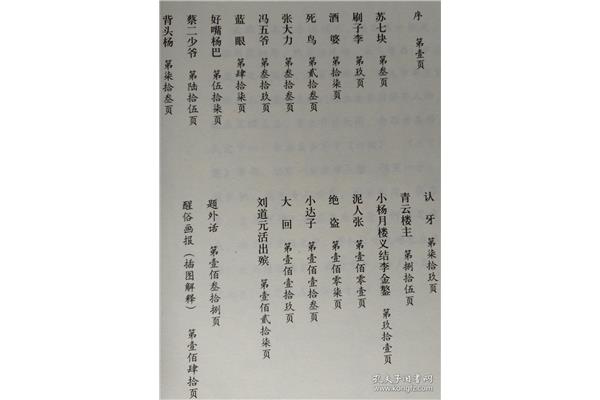 序 第壹页
苏七块 第叁页
刷子李 第玖页
酒婆 第拾柒页
死鸟 第贰拾叁页
张大力 第叁拾叁页
冯五爷 第叁拾玖页
蓝眼 第肆拾柒页
好嘴杨巴 第伍拾柒页
蔡二少爷 第陆拾伍页
背头杨 第柒拾叁页
认牙 第柒拾玖页
青云楼主 第捌拾伍页
小杨月楼义结李金鏊 第玖拾壹页
泥人张 第壹佰零壹页
绝盗 第壹佰零柒页
小达子 第壹佰壹拾叁页
大回 第壹佰壹拾玖页
刘道元活出殡 第壹佰贰拾柒页
题外话 第壹佰叁拾捌页
醒俗画报（插图解释） 第壹佰肆拾页
孔夫子旧书网
www.kongfz.com